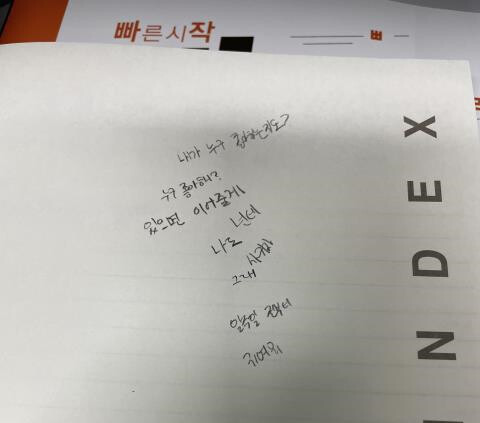 빠른시작
내가 누구 좋아하는지도?
누구 좋아해?
있으면 이어줄게
넌데
나도
사귈
그래
일주일
귀여워
INDEX